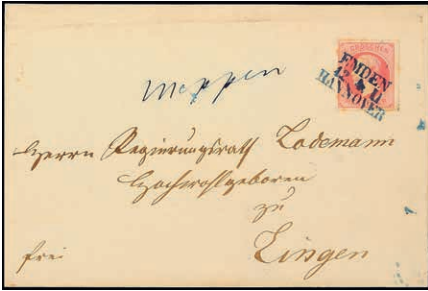 GROSCHEN
EMDEN
12 11
HANNOVER
Meppen
Herrn Regierungsrath Lodemann
Hochwohlgeboren
zu
Lingen
frei